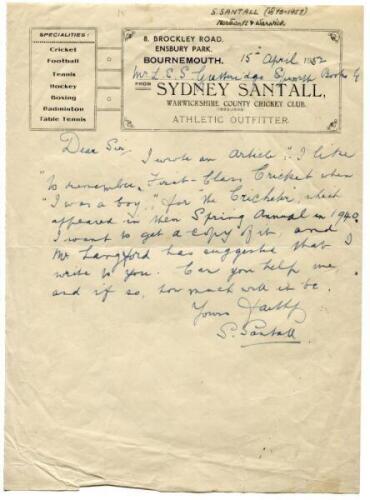 S. SANTALL (1873-1957)
Northants & Warwick
SPECIALITIES:
Cricket
Football
Tennis
Hockey
Boxing
Badminton
Table Tennis
8, BROCKLEY ROAD,
ENSBURY PARK,
BOURNEMOUTH.
15th April 1952
Mr L. E. S. Gutteridge Epworth Books
FROM
SYDNEY SANTALL,
WARWICKSHIRE COUNTY CRICKET CLUB.
ATHLETIC OUTFITTER.
Dear Sir,
I wrote an Article, "I like
to remember, First-Class Cricket when
I was a boy", for "the Cricketer", which
appeared in their Spring Annual in 1940.
I want to get a copy of it, and
Mr Langford has suggested that I
write to you. Can you help me
and if so, how much will it be.
Yours faithfy
S. Santall